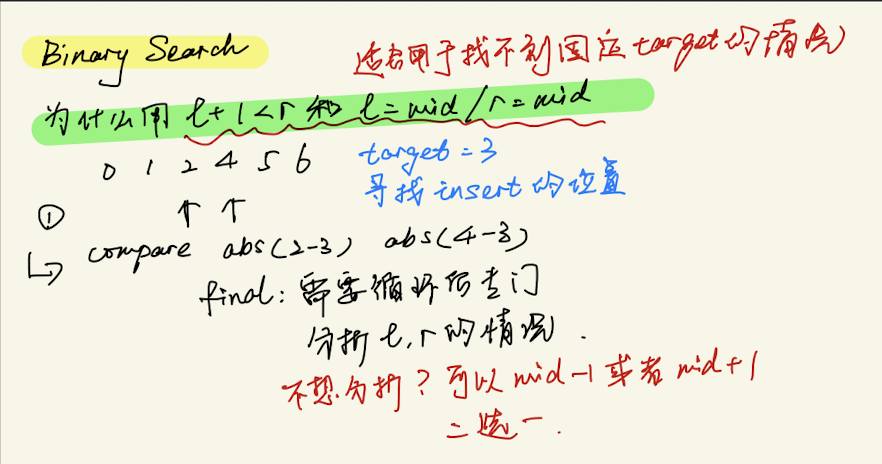 Binary Search
适用于找不到固定target的情况
为什么用 l+1<r 和 l=mid/r=mid
0 1 2 4 5 6 target=3
寻找insert的位置
① ↑ ↑
↳ compare abs(2-3) abs(4-3)
final: 需要循环后专门
分析 l, r 的情况.
不想分析? 可以 mid-1 或者 mid+1
二选一.